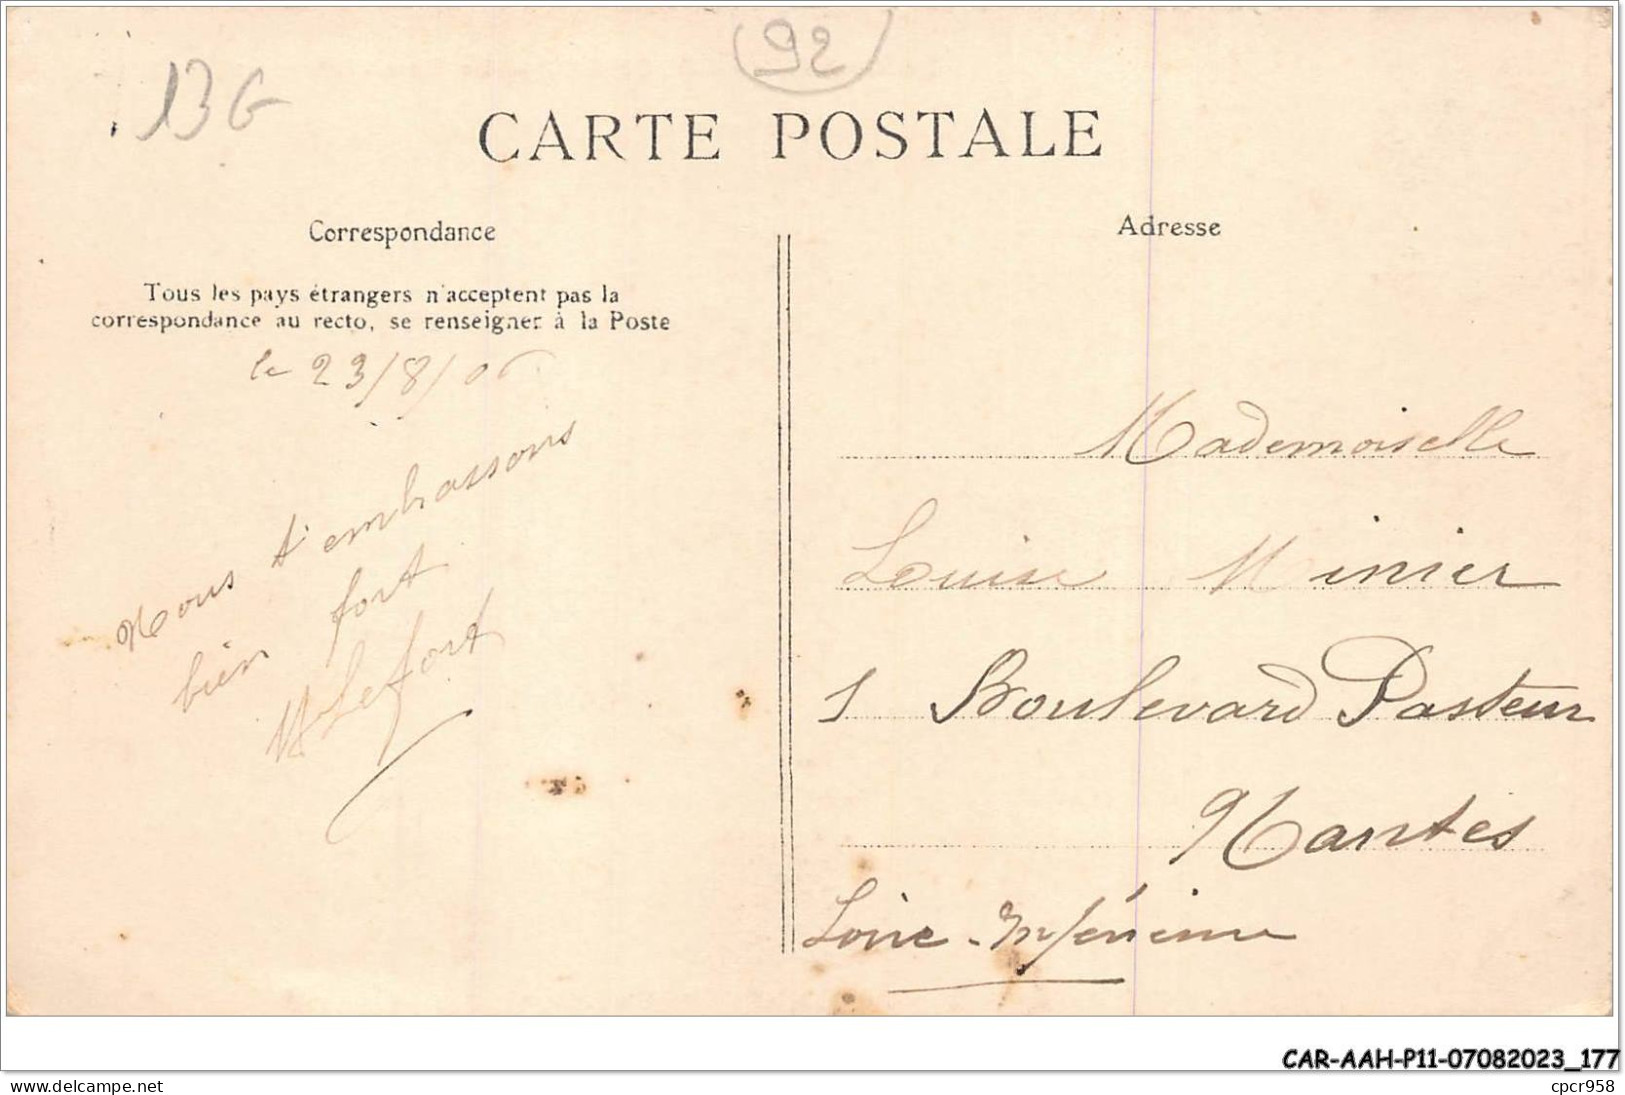 13G
92
CARTE POSTALE
Correspondance
Adresse
Tous les pays étrangers n'acceptent pas la
correspondance au recto, se renseigner à la Poste
le 23/8/06
Nous t'embrassons
bien fort
Lefort
Mademoiselle
Louise Minier
1 Boulevard Pasteur
Nantes
Loire-Inférieure
CAR-AAH-P11-07082023_177
www.delcampe.net
cpcr958